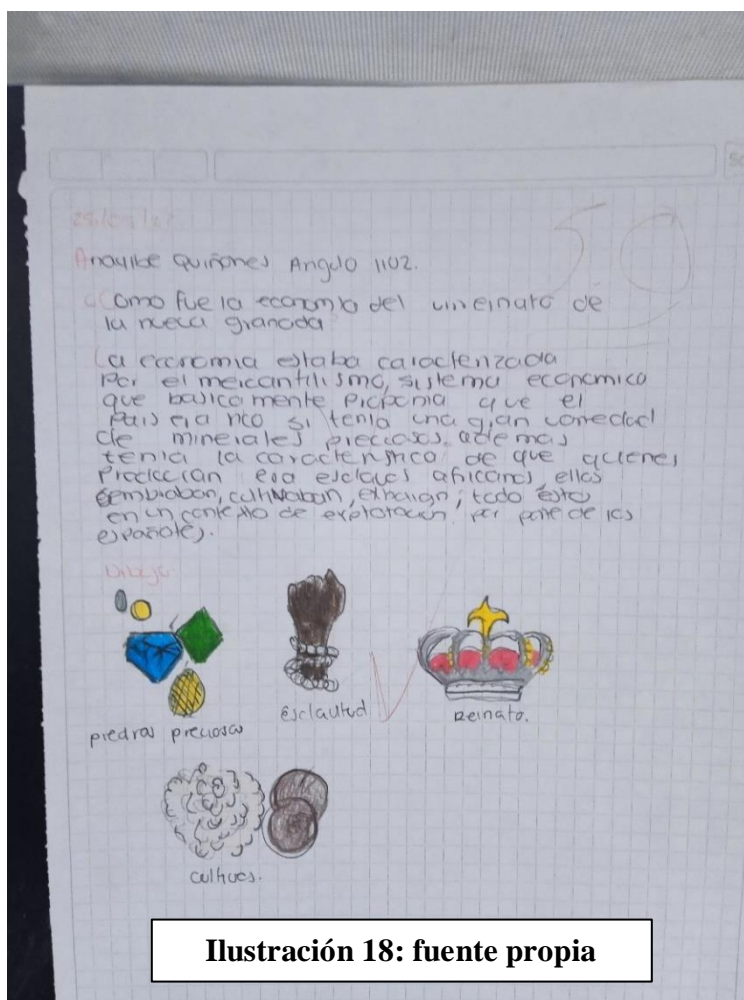 50
Anayibe Quiñones Angulo 1102.
¿Como fue la economia del virreinato de
la nueva granada
La economia estaba caracterizada
Por el mercantilismo, sistema economico
que basicamente proponia que el
Pais era rico si tenia una gran variedad
de minerales preciosos, ademas
tenia la caracteristica de que quienes
Producian era esclavos africanos, ellos
sembraban, cultivaban, extraian; todo esto
en un contexto de explotacion por parte de los
españoles.
Dibujo
piedras preciosas
esclavitud
Reinato.
cultivos.
Ilustración 18: fuente propia